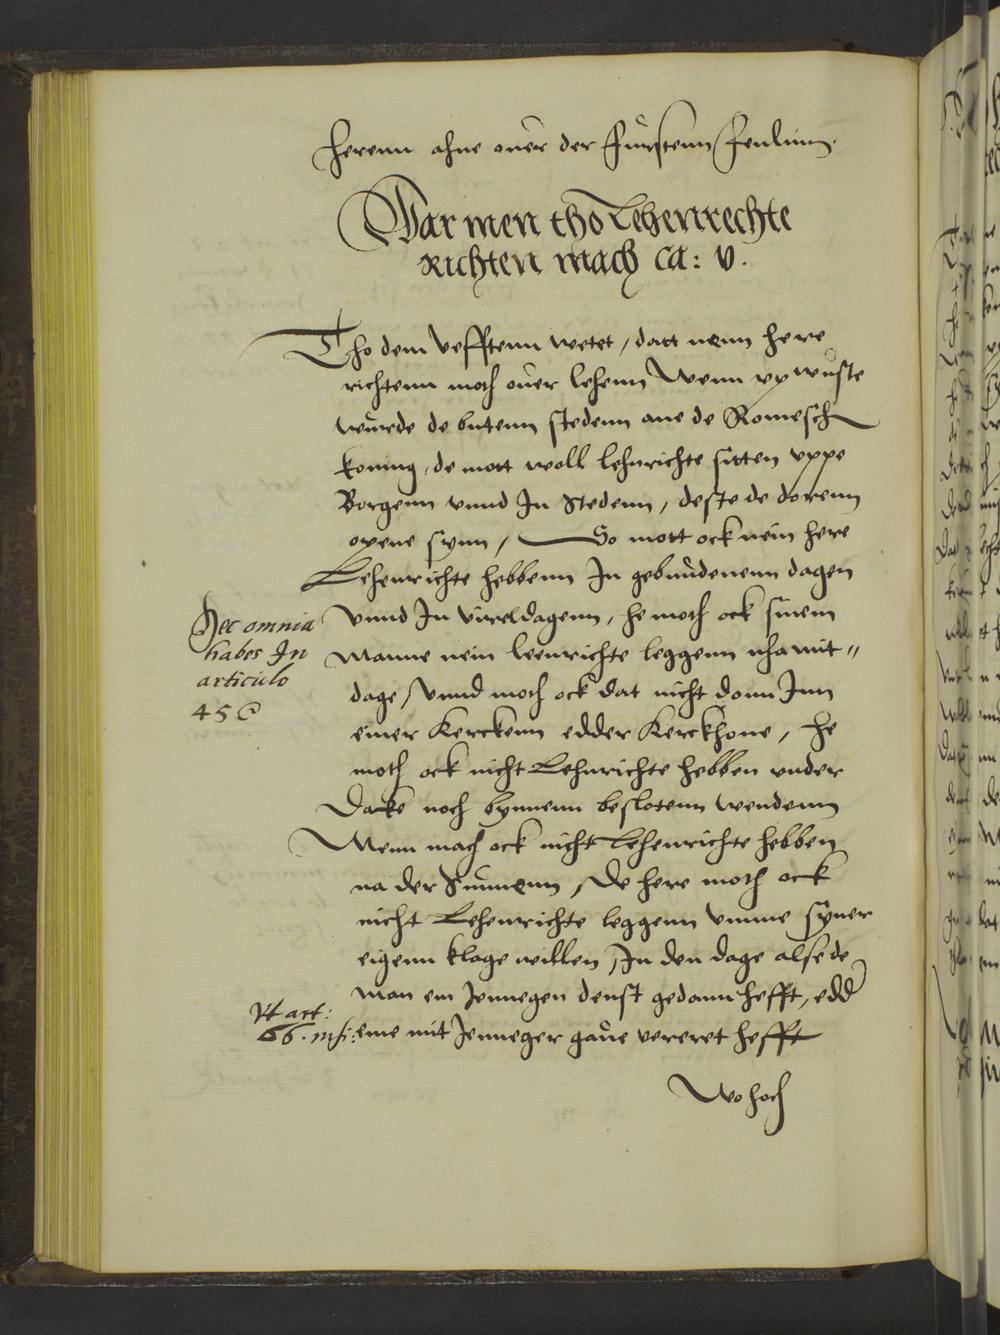 herenn ahne ouer der Furstenn Fenlinn.
Dar men tho Lehenrechte
Richten mach ca: v.
Tho dem Vefftenn wetet / datt nenn here
richtenn moth ouer lehenn Wenn vp wuste
wurde de butenn stedenn ane de Romesch
koning, de mott woll lehnrichte sitten vppe
Borgenn vnnd In Stedenn, deste de dorenn
opene synn / So mott ock nein here
Lehenrichte hebbenn In gebundenenn dagen
vnnd In vireldagenn, he moth ock sinem
Manne nein leenrichte leggenn nhamit"
dage / Vnnd moth ock dat nicht donn Inn
einer Kerckenn edder Kerckhoue, he
moth ock nicht Lehnrichte hebben vnder
Dacke noch bynnenn beslotenn wendenn
Menn mach ock nicht Lehenrichte hebben
na der Sunnenn, De here moth ock
nicht Lehenrichte leggenn vmme syner
eigenn klage willen, In den dage alse de
man em Jennegen denst gedann hefft, edd
eme mit Jenneger gaue vereret hefft
Wo hoch
Hec omnia
habes In
articulo
45
Vt art:
66. infr: